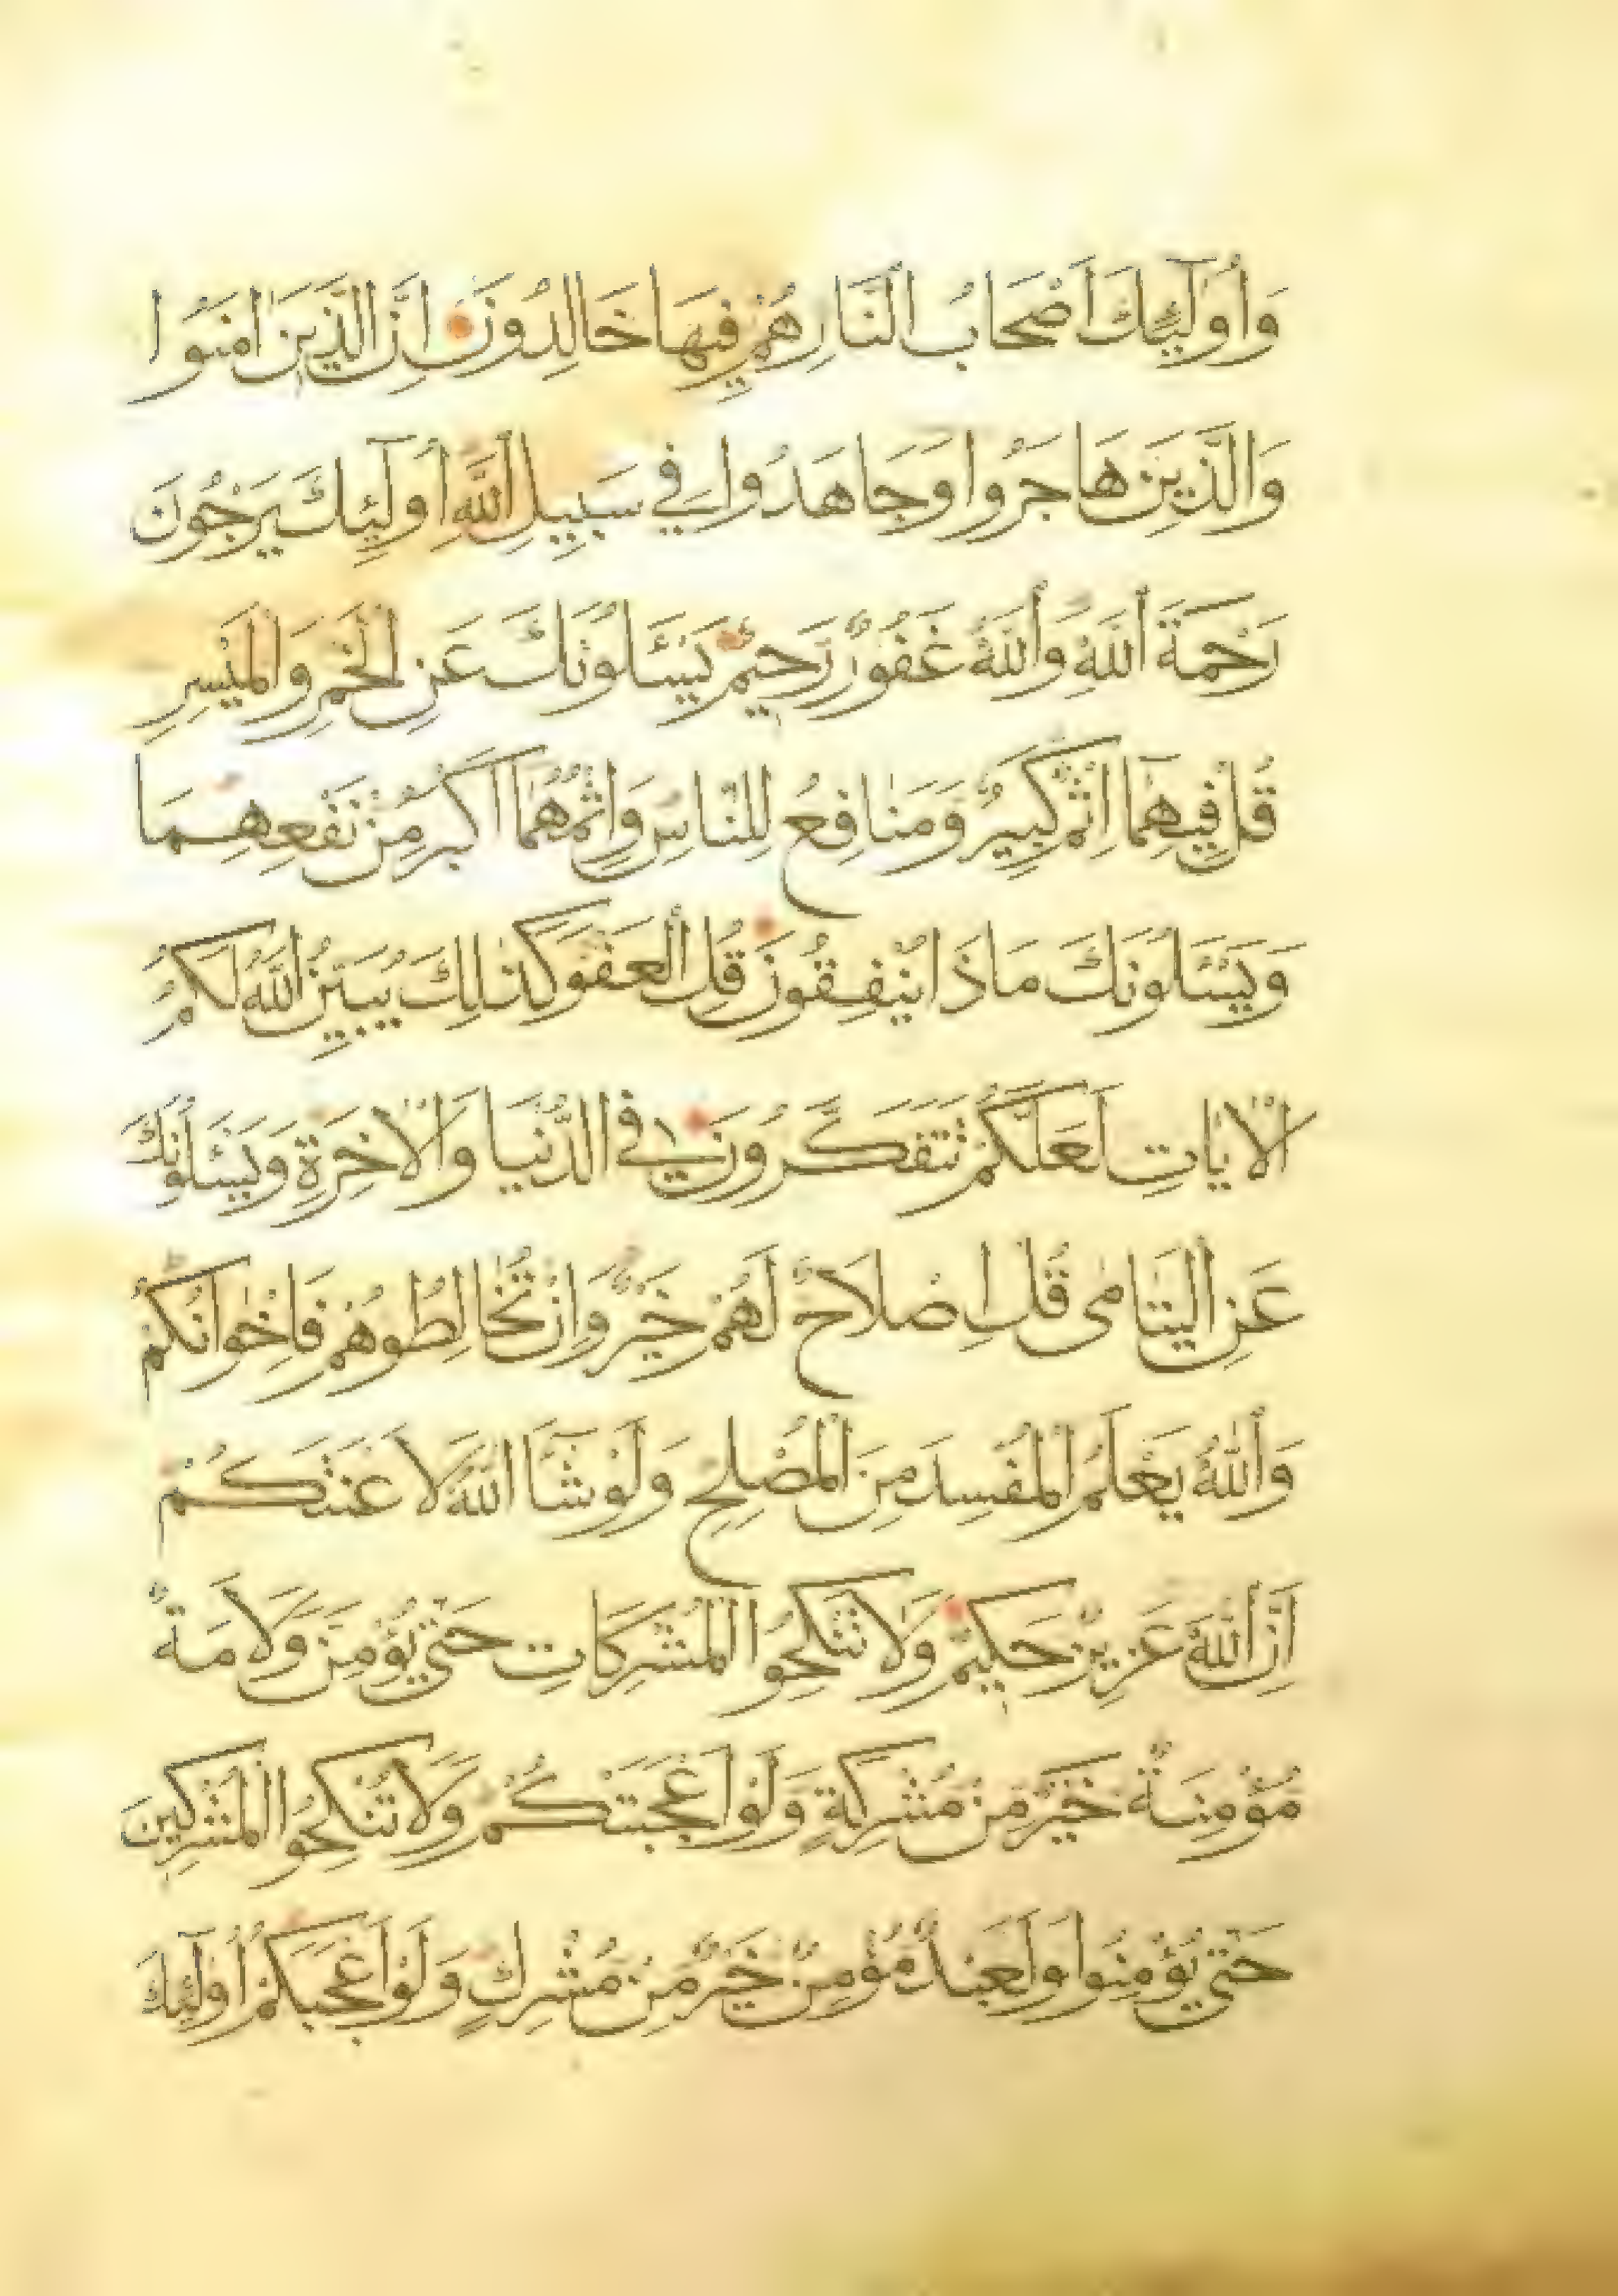 وَأُولَٰئِكَ أَصْحَابُ النَّارِ هُمْ فِيهَا خَالِدُونَ اِنَّ الَّذِينَ اٰمَنُوا
وَالَّذِينَ هَاجَرُوا وَجَاهَدُوا فِي سَبِيلِ اللَّهِ اُولَٰئِكَ يَرْجُونَ
رَحْمَةَ اللَّهِ وَاللَّهُ غَفُورٌ رَحِيمٌ يَسْـَٔلُونَكَ عَنِ الْخَمْرِ وَالْمَيْسِرِ
قُلْ فِيهِمَا اِثْمٌ كَبِيرٌ وَمَنَافِعُ لِلنَّاسِ وَاِثْمُهُمَا اَكْبَرُ مِنْ نَفْعِهِمَا
وَيَسْـَٔلُونَكَ مَاذَا يُنْفِقُونَ قُلِ الْعَفْوَ كَذٰلِكَ يُبَيِّنُ اللَّهُ لَكُمُ
الْاٰيَاتِ لَعَلَّكُمْ تَتَفَكَّرُونَ فِي الدُّنْيَا وَالْاٰخِرَةِ وَيَسْـَٔلُونَكَ
عَنِ الْيَتَامٰى قُلْ اِصْلَاحٌ لَهُمْ خَيْرٌ وَاِنْ تُخَالِطُوهُمْ فَاِخْوَانُكُمْ
وَاللَّهُ يَعْلَمُ الْمُفْسِدَ مِنَ الْمُصْلِحِ وَلَوْ شَآءَ اللَّهُ لَاَعْنَتَكُمْ
اِنَّ اللَّهَ عَزِيزٌ حَكِيمٌ وَلَا تَنْكِحُوا الْمُشْرِكَاتِ حَتّٰى يُؤْمِنَّ وَلَاَمَةٌ
مُؤْمِنَةٌ خَيْرٌ مِنْ مُشْرِكَةٍ وَلَوْ اَعْجَبَتْكُمْ وَلَا تُنْكِحُوا الْمُشْرِكِينَ
حَتّٰى يُؤْمِنُوا وَلَعَبْدٌ مُؤْمِنٌ خَيْرٌ مِنْ مُشْرِكٍ وَلَوْ اَعْجَبَكُمْ اُولَٰئِكَ